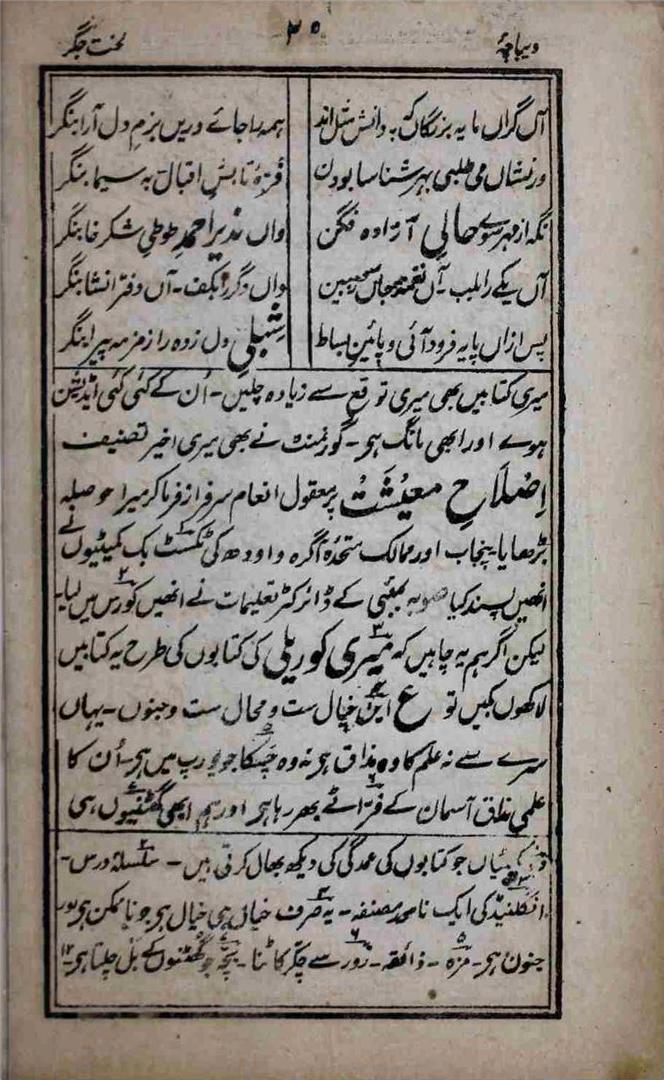 دیباچۂ
۲۰
لخت جگر
آں گراں مایہ بزرگاں کہ بہ دانش مثل اند
ہمہ را جائے دریں بزم دل آرا بنگر
ور نشاں می طلبی بہر شناسا بودن
فرۂ تابش اقبال بہ سیما بنگر
نگہ از مہر سوے حالی آزادہ فگن
واں نذیر احمد طوطی شکر خا بنگر
آں یکے را بلب۔ آں نغمہ
واں دگر را بکف۔ آں دفتر انشا بنگر
پس ازاں پایہ فرود آئی و پائین بساط
شبلی دل زدہ را زمزمہ پیرا بنگر
میری کتابیں بھی میری توقع سے زیادہ چلیں۔ اُن کے کئی کئی اڈیشن
ہوے اور ابھی مانگ ہی۔ گورنمنٹ نے بھی میری اخیر تصنیف
اِصْلَاحِ معیْشَتْ پر معقول انعام سرفراز فرما کر میرا حوصلہ
بڑھایا۔ پنجاب اور ممالک متحدۂ آگرہ و اودھ کی ٹکسٹ بک کمیٹیوں نے
انھیں پسند کیا صوبہ بمبئی کے ڈائرکٹر تعلیمات نے انھیں کورس میں لیا۔
لیکن اگر ہم یہ چاہیں کہ میری کوریلی کی کتابوں کی طرح یہ کتابیں
لاکھوں بکیں تو ع این خیال ست و محال ست و جنوں۔ یہاں
سرے سے نہ علم کا وہ مذاق ہی نہ وہ چسکا جو یورپ میں ہی۔ اُن کا
علمی مذاق آسمان کے فرّاٹے بھر رہا ہی اور ہم ابھی گھٹنیوں ہی
کمیٹیاں جو کتابوں کی عمدگی کی دیکھ بھال کرتی ہیں۔ ۲ سلسلۂ درس۔
انگلینڈ کی ایک نامور مصنفہ۔ ۴ یہ صرف خیال ہی خیال ہی جو ناممکن ہی اور
جنون ہی۔ ۵ مزہ۔ ذائقہ۔ ۶ زور سے چکر کاٹنا۔ بچہ جو گھٹنوں کے بل چلتا ہی۔ ۱۲